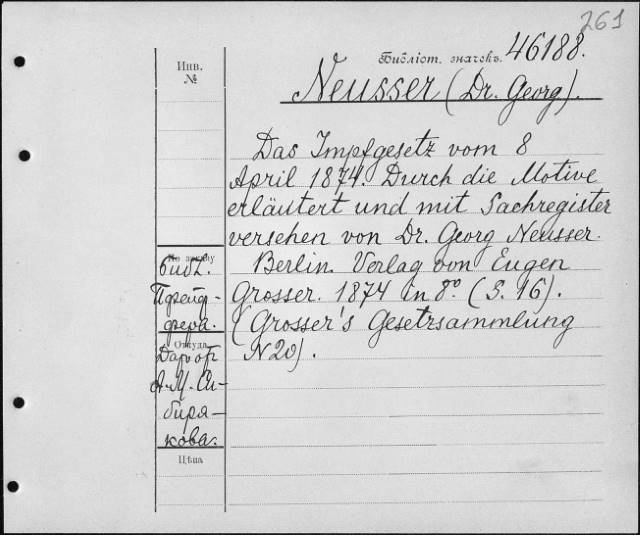 261
Инв.
№
Библіот. значекъ. 46188.
Neusser (Dr. Georg).
Das Impfgesetz vom 8
April 1874. Durch die Motive
erläutert und mit Sachregister
versehen von Dr. Georg Neusser.
Berlin. Verlag von Eugen
Grosser. 1874 in 8º (S. 16).
(Grosser's Gesetzsammlung
N 20).
По
библ.
Пфейф-
фера.
Откуда
Дар от
А. М. Си-
биря-
кова.
Цѣна